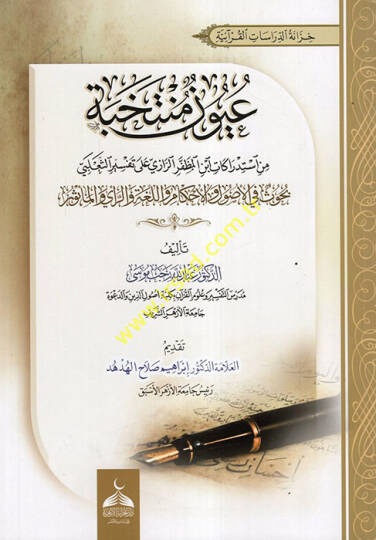 خزانة الدراسات القرآنية
عيون منتخبة
من استدراكات ابن المظفر الرازي على تفسير الثعلبي
بحوث في الأصول والأحكام واللغة والرأي والمأثور
تأليف
الدكتور عبد الله رجب موسى
مدرس التفسير وعلوم القرآن بكلية أصول الدين والدعوة
جامعة الأزهر الشريف
تقديم
العلامة الدكتور إبراهيم صلاح الهدهد
رئيس جامعة الأزهر الأسبق